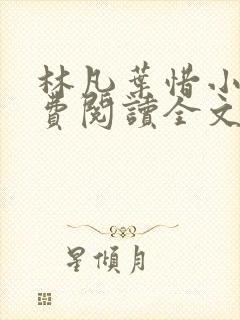 林凡葉惜小
費閱讀全文
星傾月